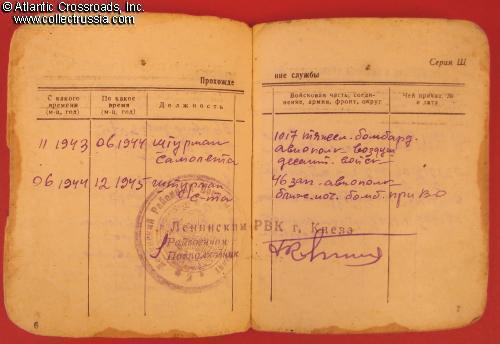 © Atlantic Crossroads, Inc.
www.collectrussia.com
Серия Ш
Прохожде
ние службы
С какого времени (м-ц, год)
По какое время (м-ц, год)
Должность
Войсковая часть, соединение, армия, фронт, округ
Чей приказ, № и дата
11 1943 06 1944 штурман самолета
1017 тяжел. бомбард. авиополк воздуш десант. войск
06 1944 12 1945 штурман с-та
46 зап. авиополк
Ленинский РВК г. Киева
Райвоенком
Подполковник
6
7